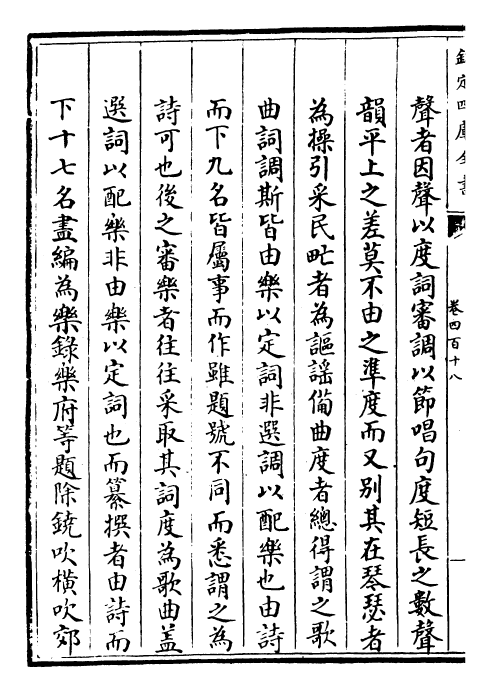 欽定四庫全書
卷四百十八
聲者因聲以度詞審調以節唱句度短長之數聲
韻平上之差莫不由之準度而又別其在琴瑟者
為操引采民甿者為謳謡備曲度者總得謂之歌
曲詞調斯皆由樂以定詞非選調以配樂也由詩
而下九名皆屬事而作雖題號不同而悉謂之為
詩可也後之審樂者往往采取其詞度為歌曲盖
選詞以配樂非由樂以定詞也而纂撰者由詩而
下十七名盡編為樂錄樂府等題除鐃吹横吹郊